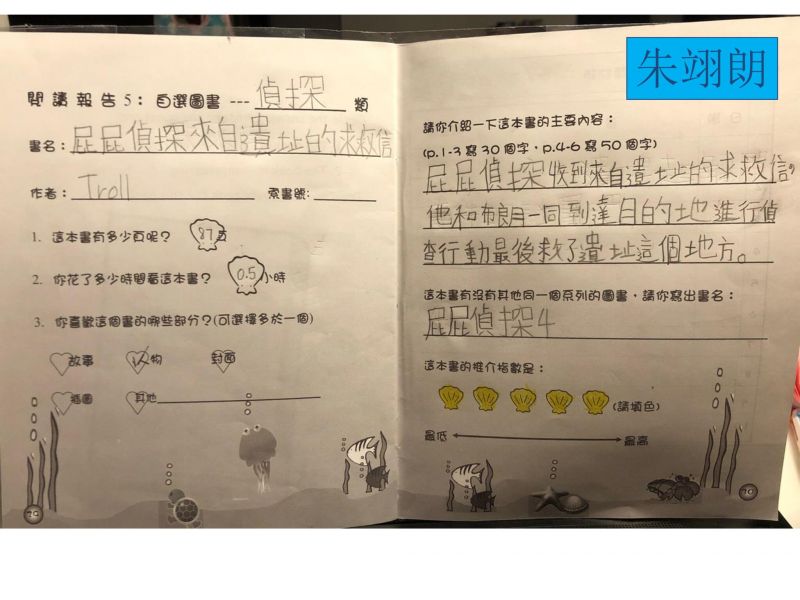 朱翊朗
閱讀報告5：自選圖書 --- 偵探 類
書名：屁屁偵探來自遺址的求救信
作者：Troll 索書號：
1. 這本書有多少頁呢？ 87 頁
2. 你花了多少時間看這本書？ 0.5 小時
3. 你喜歡這個書的哪些部分？(可選擇多於一個)
故事 人物 封面
插圖 其他
請你介紹一下這本書的主要內容：
(p.1-3 寫 30 個字，p.4-6 寫 50 個字)
屁屁偵探收到來自遺址的求救信，
他和布朗一同到達目的地進行偵
查行動最後救了遺址這個地方。
這本書有沒有其他同一個系列的圖書，請你寫出書名：
屁屁偵探4
這本書的推介指數是：
(請填色)
最低 最高